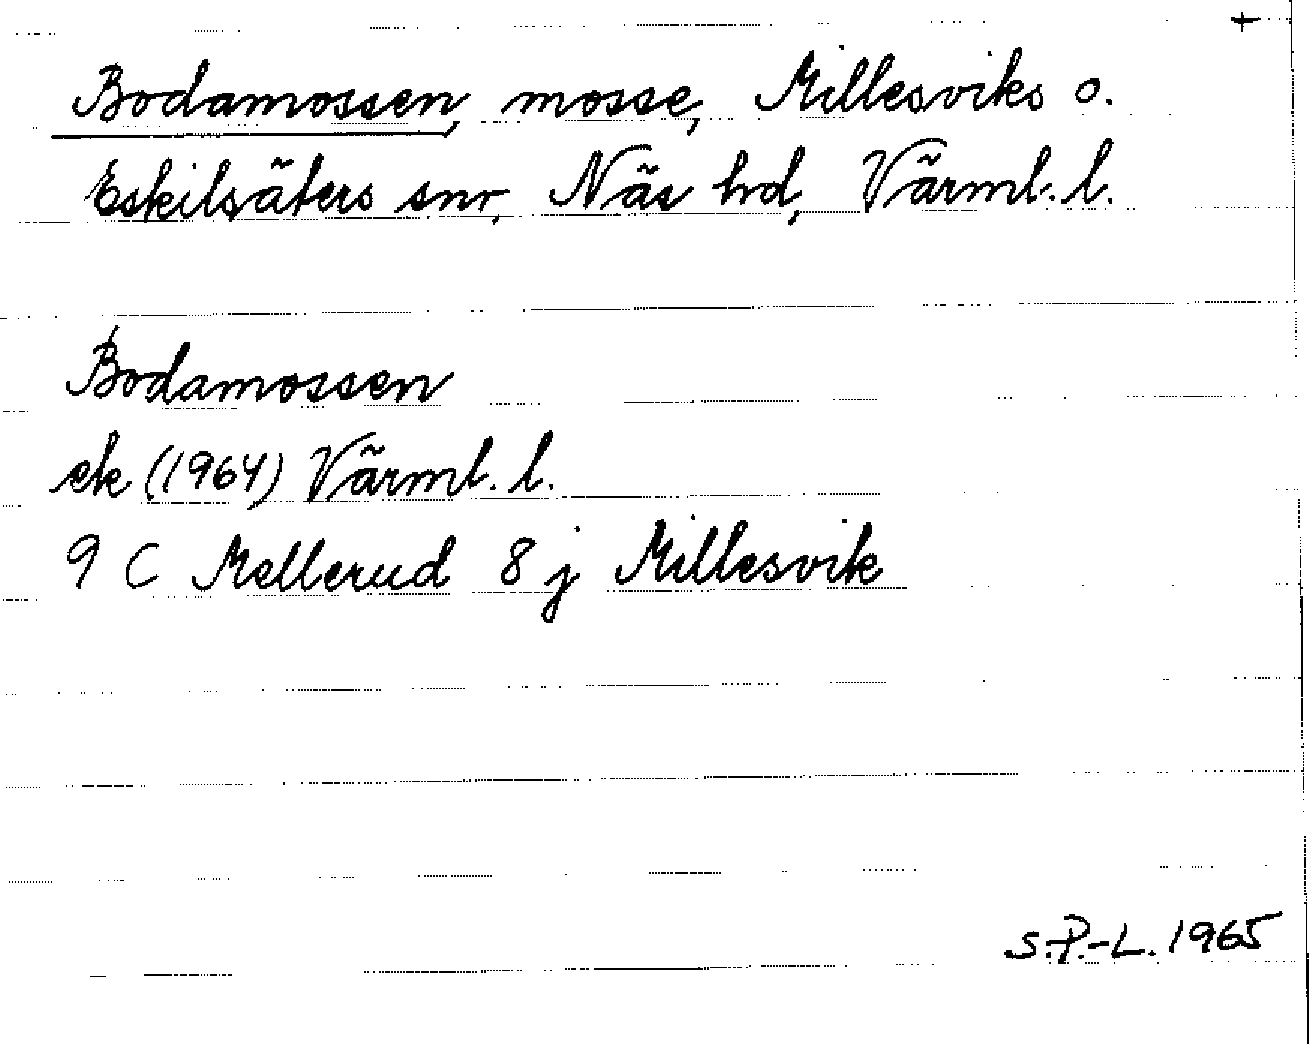 +
Bodamossen, mosse, Millesviks o.
Eskilsäters snr, Näs hd, Värml. l.
Bodamossen
ek (1964) Värml. l.
9 C Mellerud 8 j Millesvik
S.P.-L. 1965